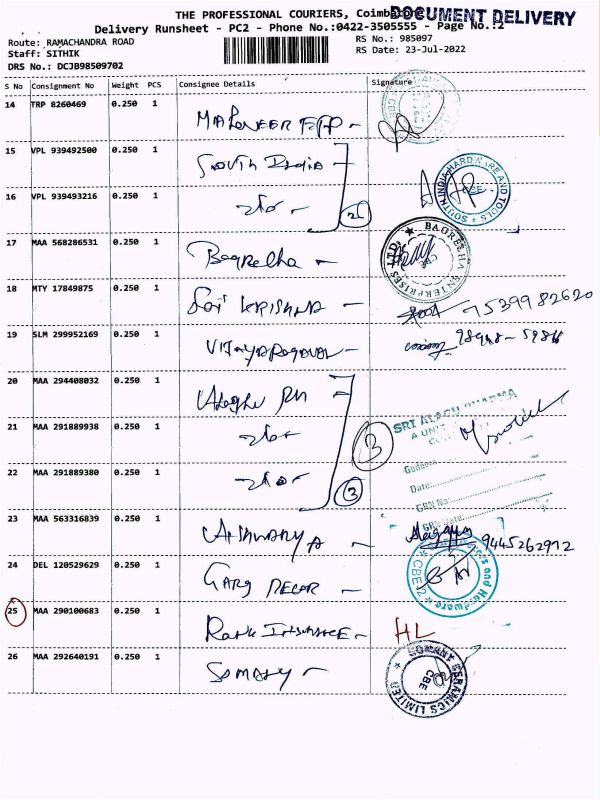 THE PROFESSIONAL COURIERS, Coimbatore
DOCUMENT DELIVERY
Delivery Runsheet - PC2 - Phone No.:0422-3505555 - Page No.:2
Route: RAMACHANDRA ROAD
RS No.: 985097
Staff: SITHIK
RS Date: 23-Jul-2022
DRS No.: DCJB98509702
S No Consignment No Weight PCS Consignee Details Signature
14 TRP 8260469 0.250 1
15 VPL 939492500 0.250 1 South India
16 VPL 939493216 0.250 1
SOUTH INDIA HARDWARE AND TOOLS
CBE
17 MAA 568286531 0.250 1 Bagrecha
BAGRECHA ENTERPRISES LTD.
CBE
18 MTY 17849875 0.250 1 Sai KRISHNA 9539982620
19 SLM 299952169 0.250 1 VIJAYARAGAVAN
20 MAA 294408032 0.250 1
21 MAA 291889938 0.250 1
SRI ALAGU PHARMA
22 MAA 291889380 0.250 1 3
Godown
Date:
GRN No:
GRN Date:
23 MAA 563316839 0.250 1 AISHWARYA 9445262912
24 DEL 120529629 0.250 1 GARG DECOR
and Hardware
CBE-12
25 MAA 290100683 0.250 1 HL
26 MAA 292640191 0.250 1 SOMANY
SOMANY CERAMICS LIMITED
CBE